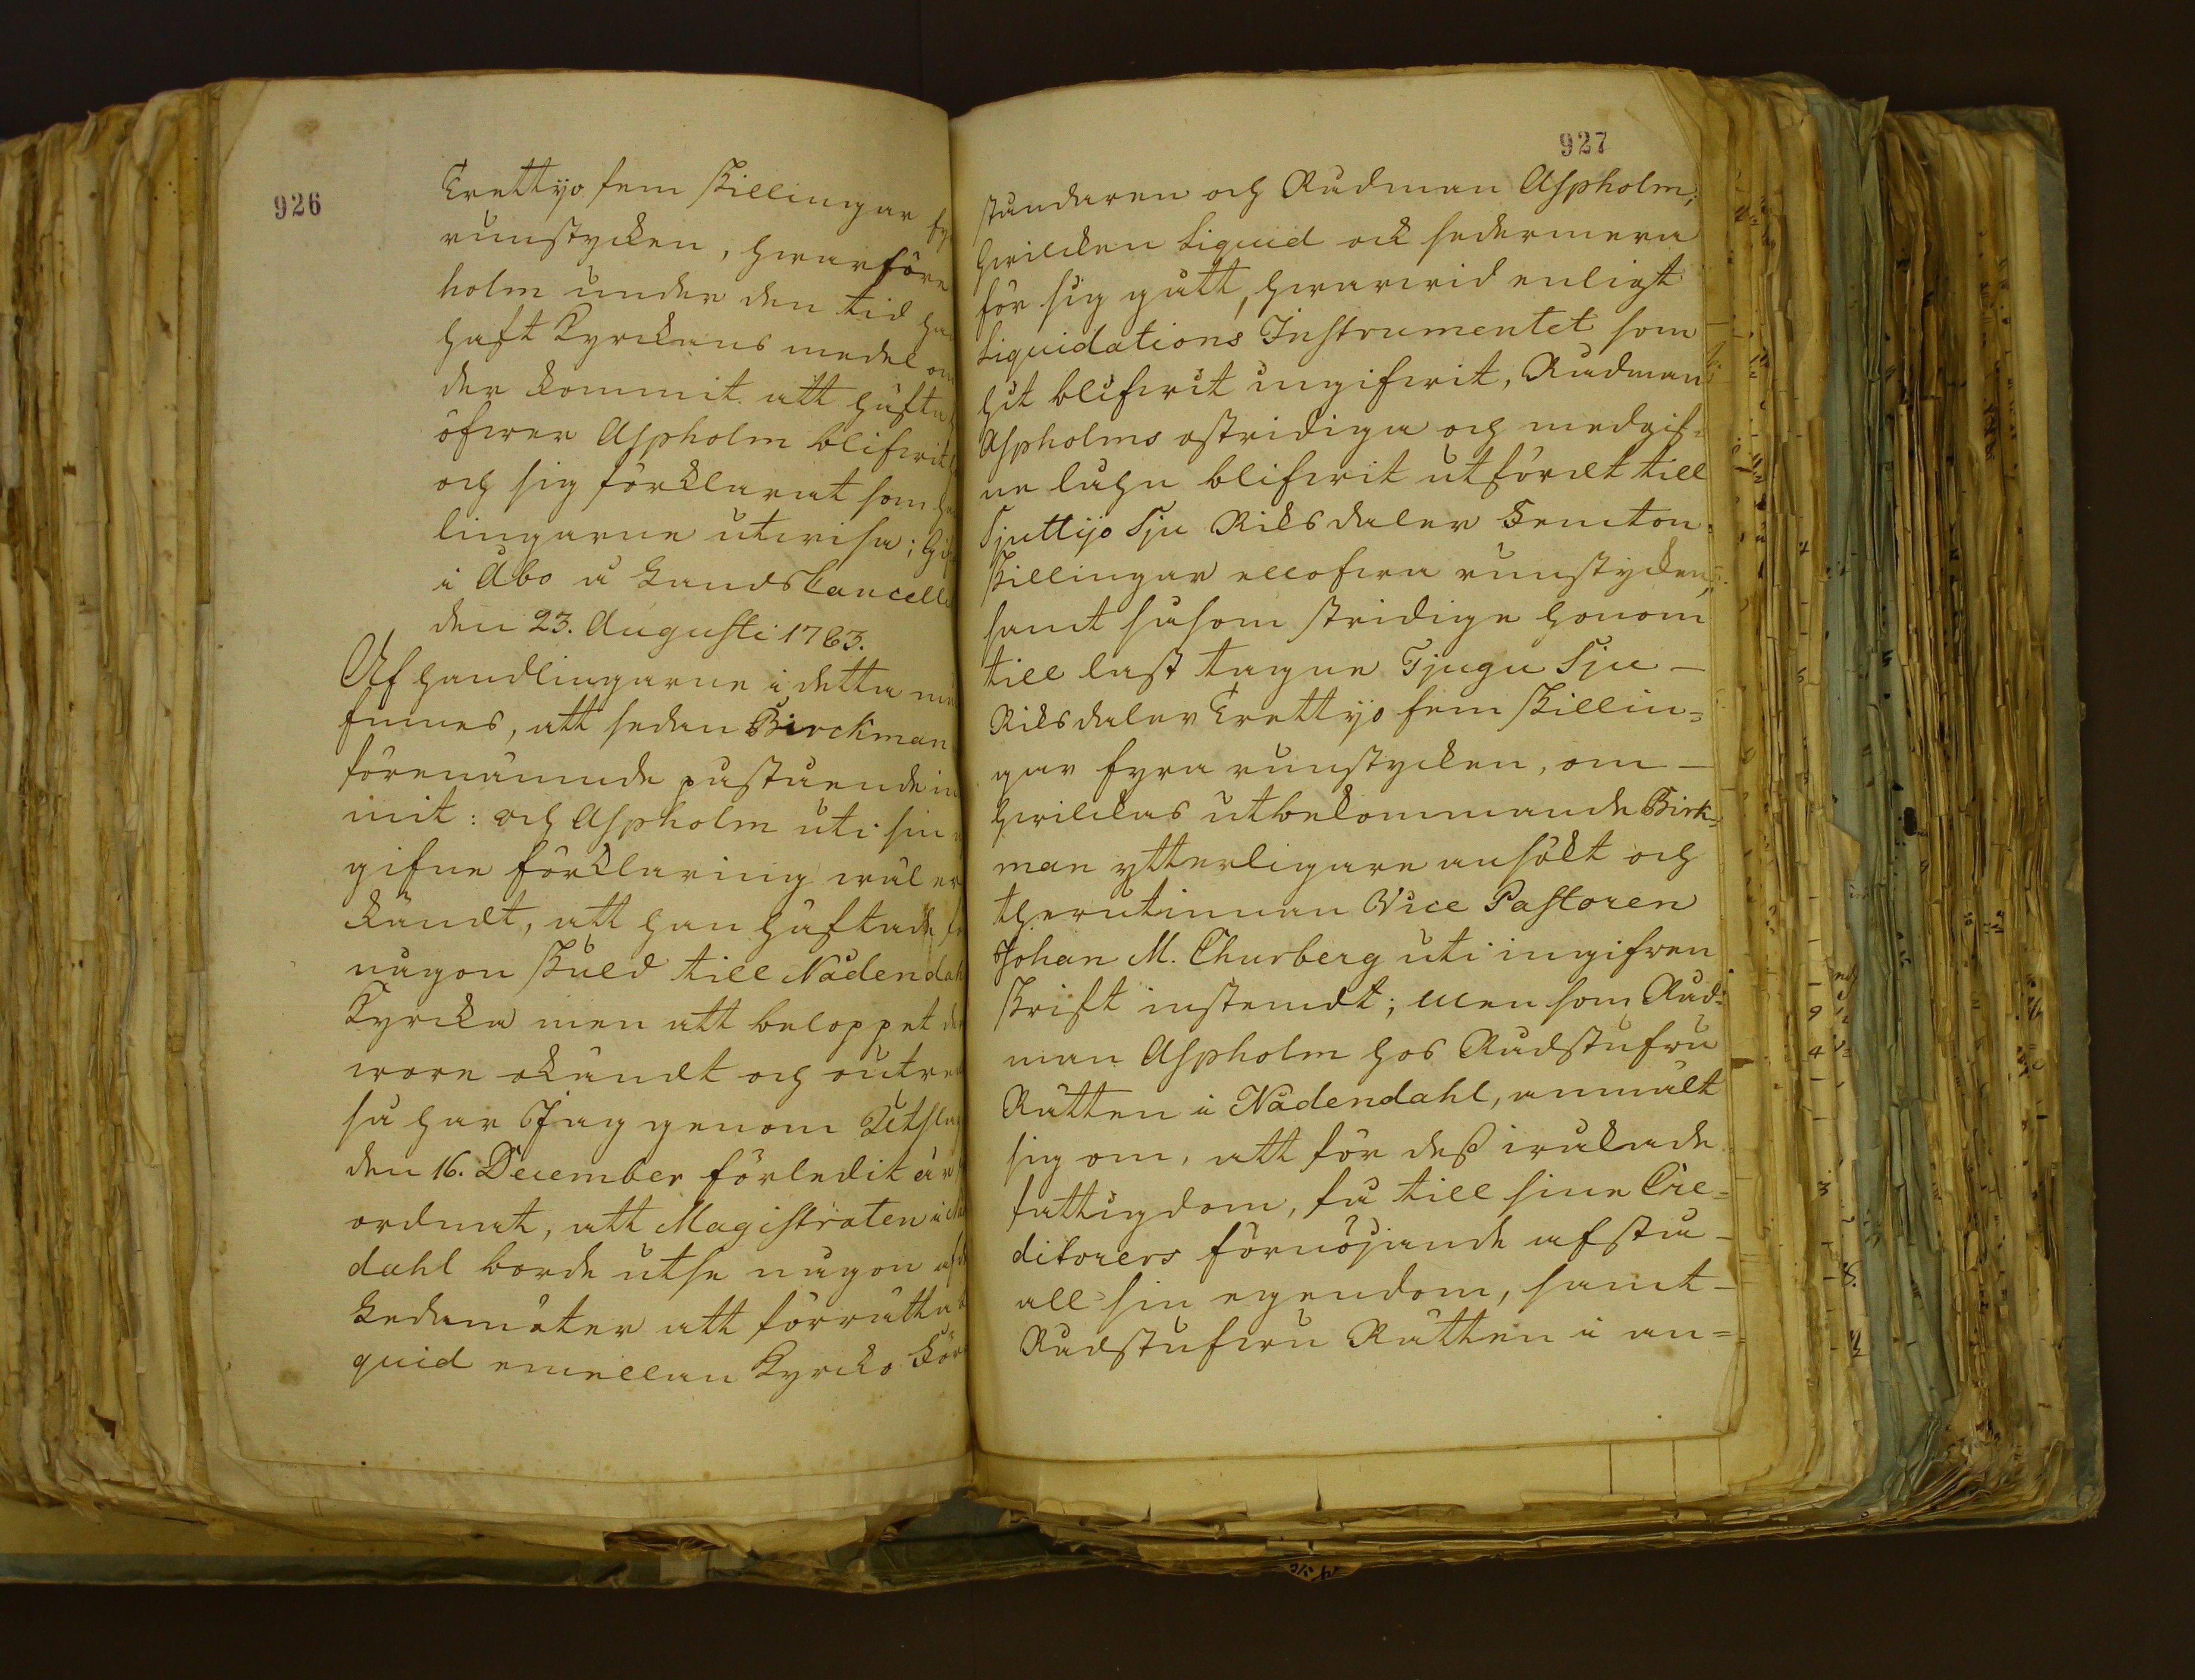 926
Trettijo fem skillingar fy
runstycken, hwarföre
holm under den tid ha
haft Kyrckans medel om
der kommit att häfta
öfwer Aspholm blifwit
och sig förklarat som ha
lingarne utwisa; Gif
i Åbo å Landscancell
den 23. Augusti 1783.
Af handlingarne i detta må
finnes, att sedan Birckman
förenämnde påstående in
mit: och Aspholm uti sin
gifne förklaring wäl er
kändt, att han häftade fö
någon skuld till Nådendah
Kyrcka men att beloppet der
wore okändt och outre
så har Jag genom Utslag
den 16. December förledit år
ordnat, att Magistraten i Nå
dahl borde utse någon af de
Ledamöter att förrätta
quid emellan Kyrcko För
927
ståndaren och Rådman Aspholm;
hwilcken Liquid ock sedermera
för sig gått, hwarwid enligt
Liquidations Instrumentet som
hit blifwit ingifwit, Rådman
Aspholms ostridiga och medgif=
ne låhn blifwit utfördt till
Sjuttijo Sju Riksdaler Femton
skillingar ellofwa runstycken,
samt såsom stridige honom
till last tagne Tjugu Sju –
Riksdaler Trettijo fem skillin=
gar fyra runstycken, om –
hwilckas utbekommande Birk=
man ytterligare ansökt och
therutinnan Vice Pastoren
Johan M. Churberg uti ingifwen
skrift instemdt; Men som Råd=
man Aspholm hos Rådstufwu
Rätten i Nådendahl, anmält
sig om, att för dess iråkade
fattigdom, få till sine Cre=
ditorers förnöjande afstå –
all sin egendom, samt –
Rådstufwu Rätten i an=